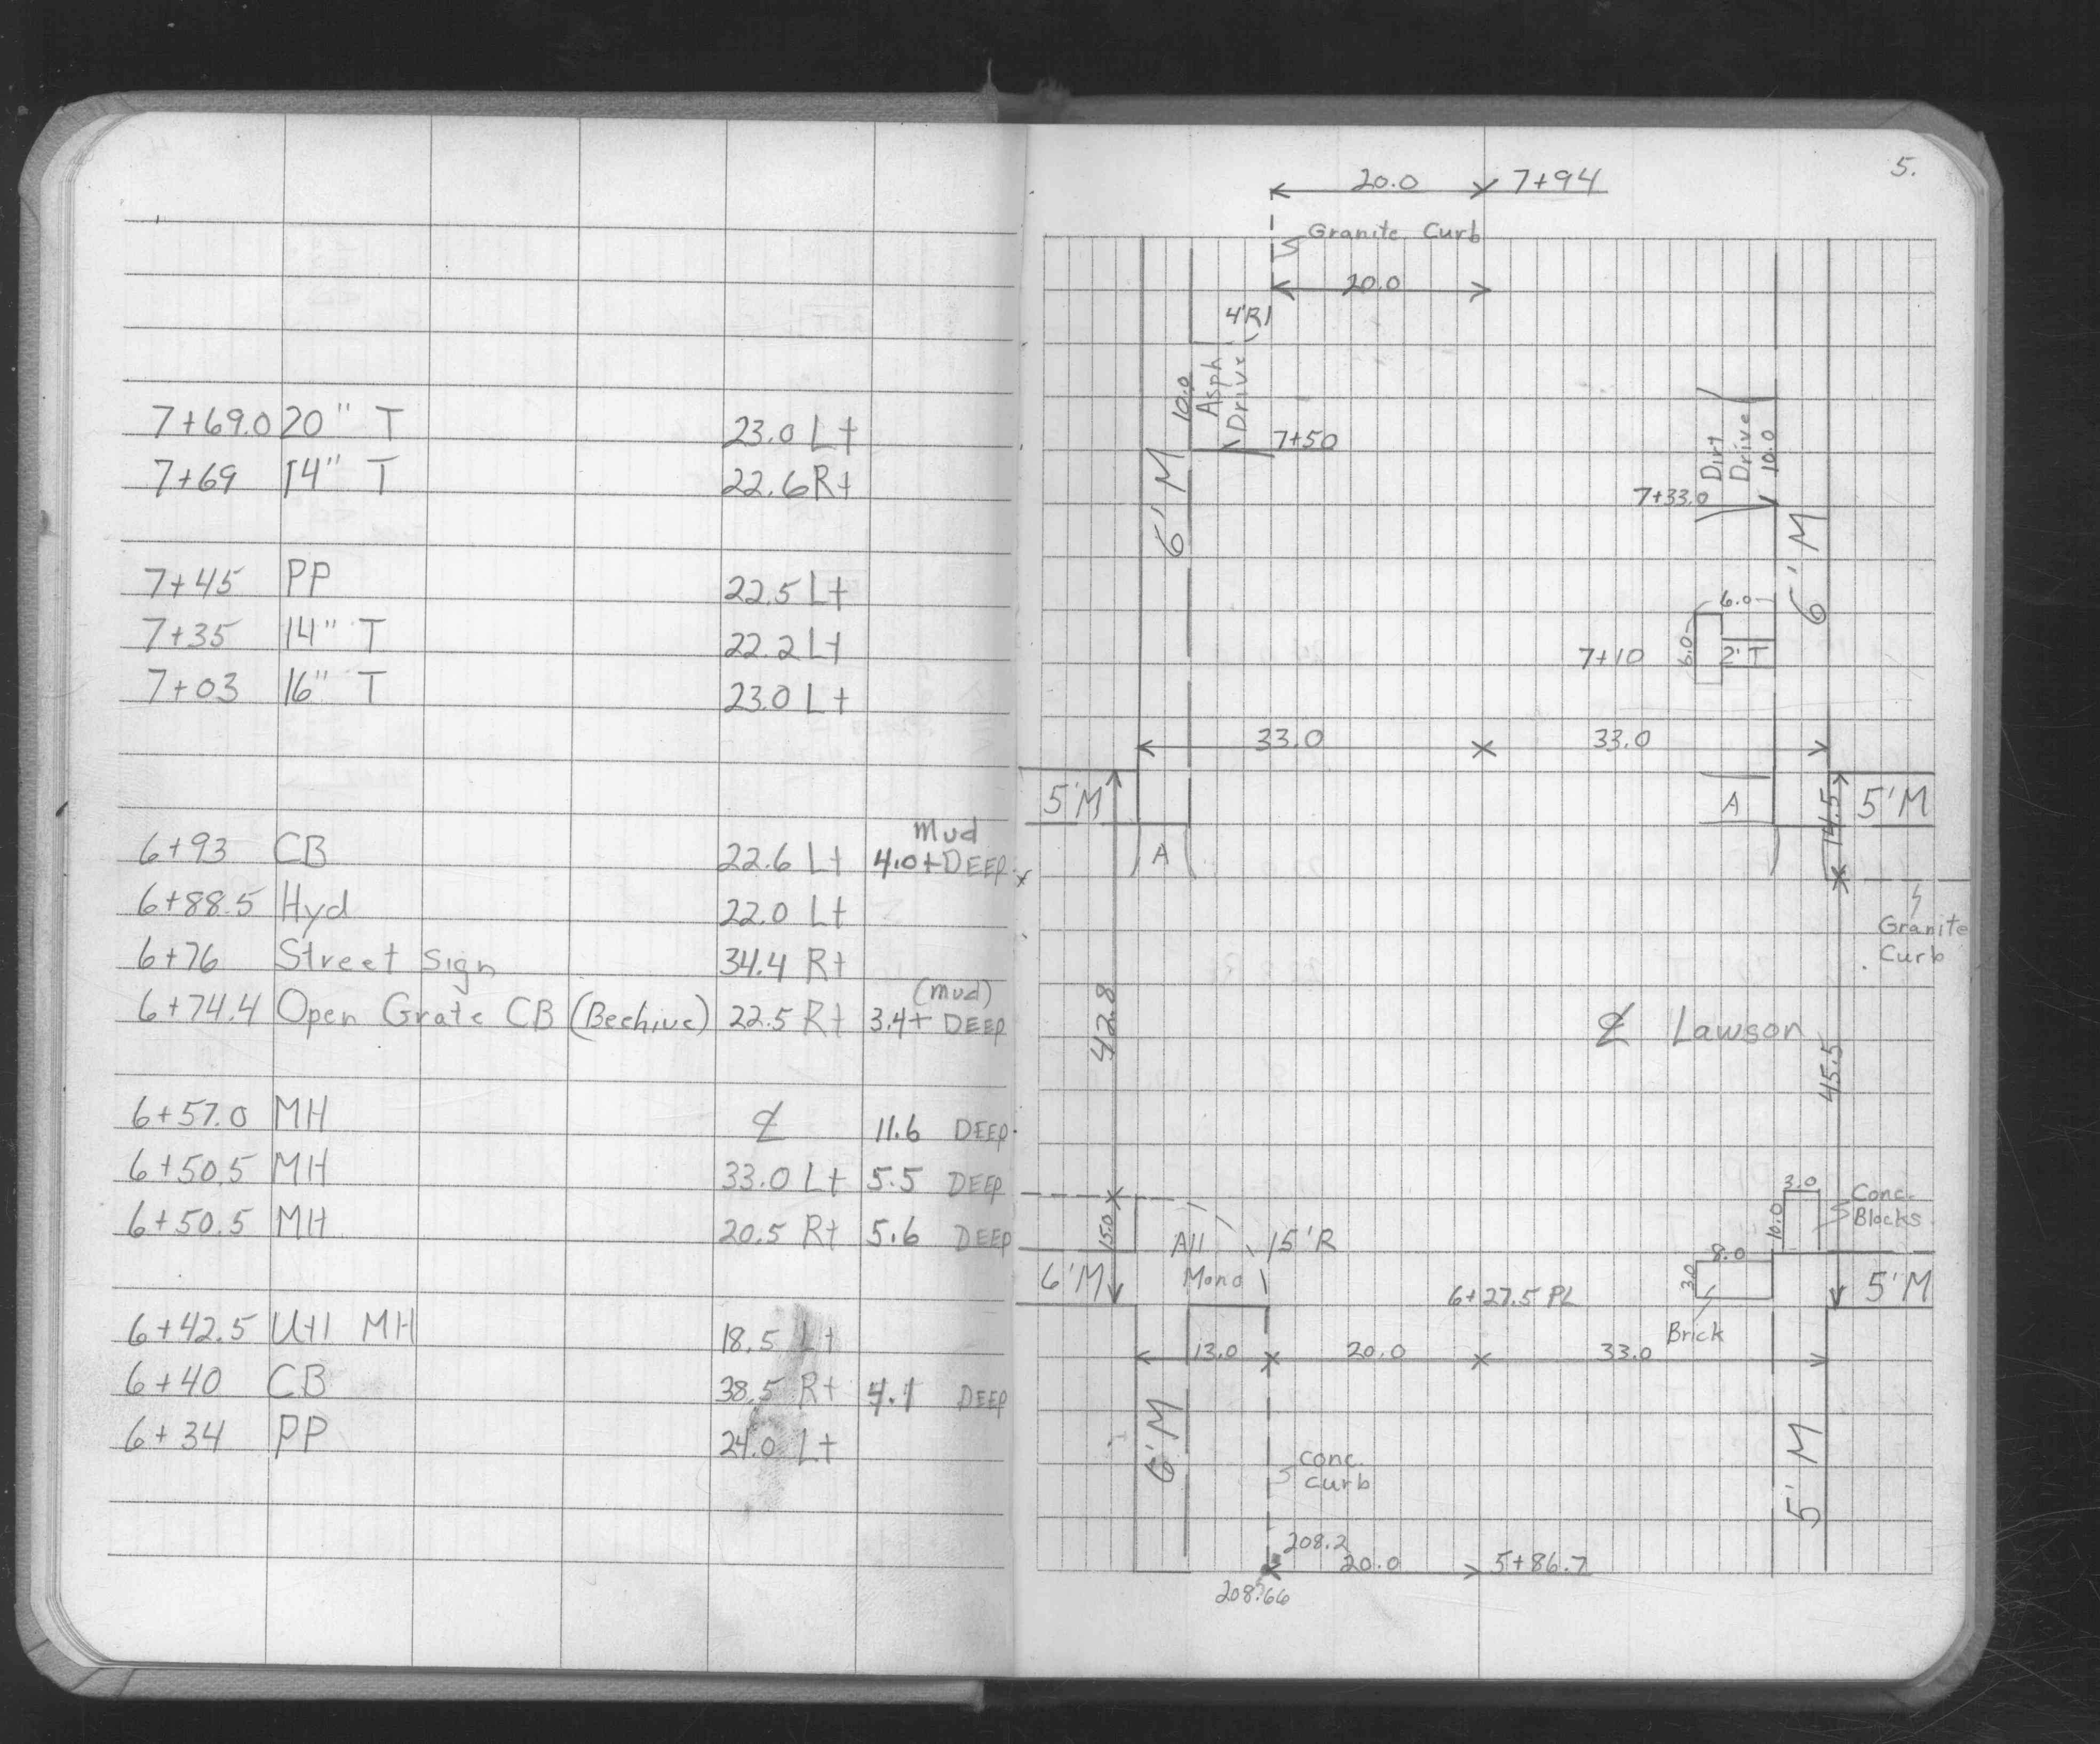 7+69.0 20" T 23.0 Lt
7+69 14" T 22.6 Rt
7+45 PP 22.5 Lt
7+35 14" T 22.2 Lt
7+03 16" T 23.0 Lt
Mud
6+93 CB 22.6 Lt 4.0+ DEEP
6+88.5 Hyd 22.0 Lt
6+76 Street Sign 34.4 Rt
(mud)
6+74.4 Open Grate CB (Beehive) 22.5 Rt 3.4+ DEEP
6+57.0 MH ℄ 11.6 DEEP
6+50.5 MH 33.0 Lt 5.5 DEEP
6+50.5 MH 20.5 Rt 5.6 DEEP
6+42.5 Util MH 18.5 Lt
6+40 CB 38.5 Rt 4.1 DEEP
6+34 PP 24.0 Lt
5.
20.0 7+94
Granite Curb
20.0
4'R
10.0
Asph
Drive
7+50
Dirt
Drive
10.0
7+33.0
6'M
6'M
6.0
6.0
7+10 2'T
33.0 33.0
5'M A 14.5 5'M
A
Granite
Curb
42.8
℄ Lawson
45.5
3.0
Conc.
Blocks
10.0
15.0 All 15'R
Mono
8.0
3.0
6'M 5'M
6+27.5 PL
Brick
13.0 20.0 33.0
6'M 5'M
Conc.
Curb
208.2
20.0 5+86.7
208.66